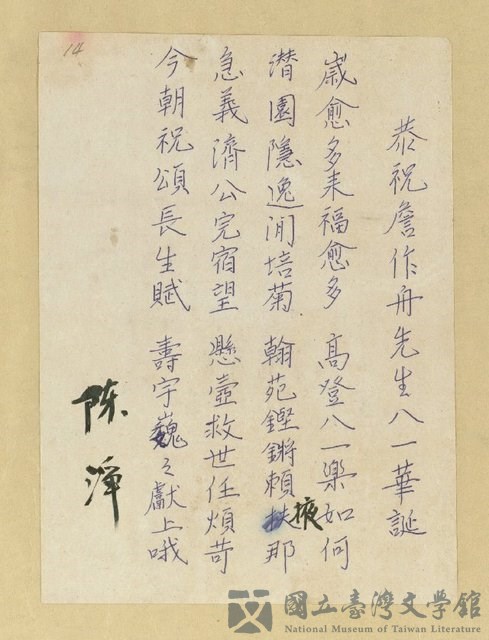 14
恭祝詹作舟先生八一華誕
歲愈多来福愈多 高登八一樂如何
潛園隱逸閒培菊 翰苑鏗鏘賴扶掖那
急義濟公完宿望 懸壺救世任煩苛
今朝祝頌長生賦 壽宇巍々獻上哦
陈渖
國立臺灣文學館
National Museum of Taiwan Literature